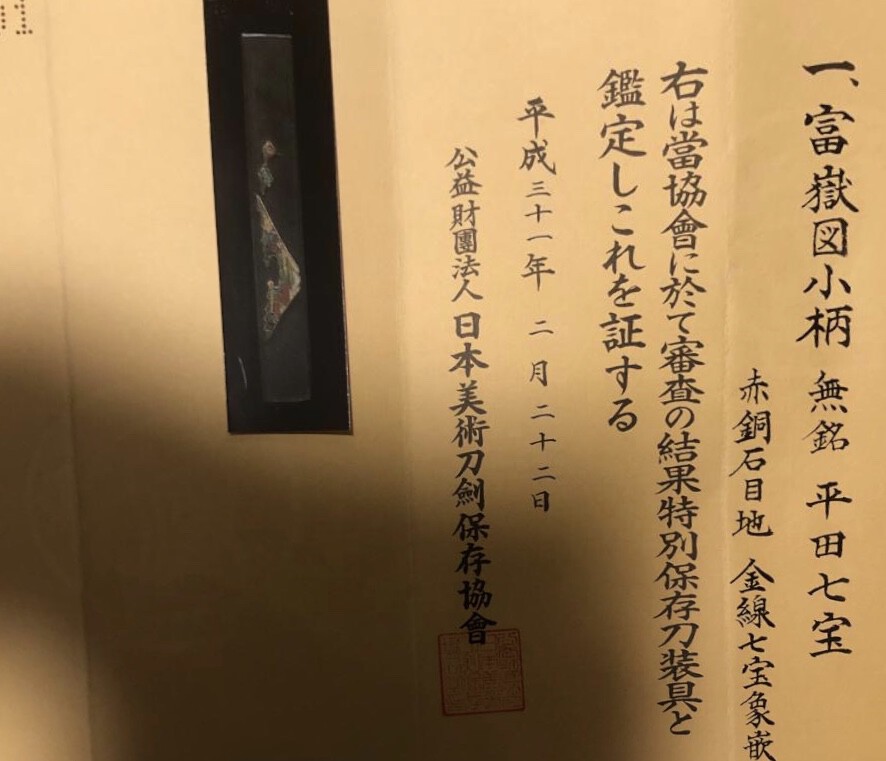 一、富嶽図小柄 無銘 平田七宝
赤銅石目地 金線七宝象嵌
右は當協會に於て審査の結果特別保存刀装具と
鑑定しこれを証する
平成三十一年 二月二十二日
公益財團法人 日本美術刀劍保存協會